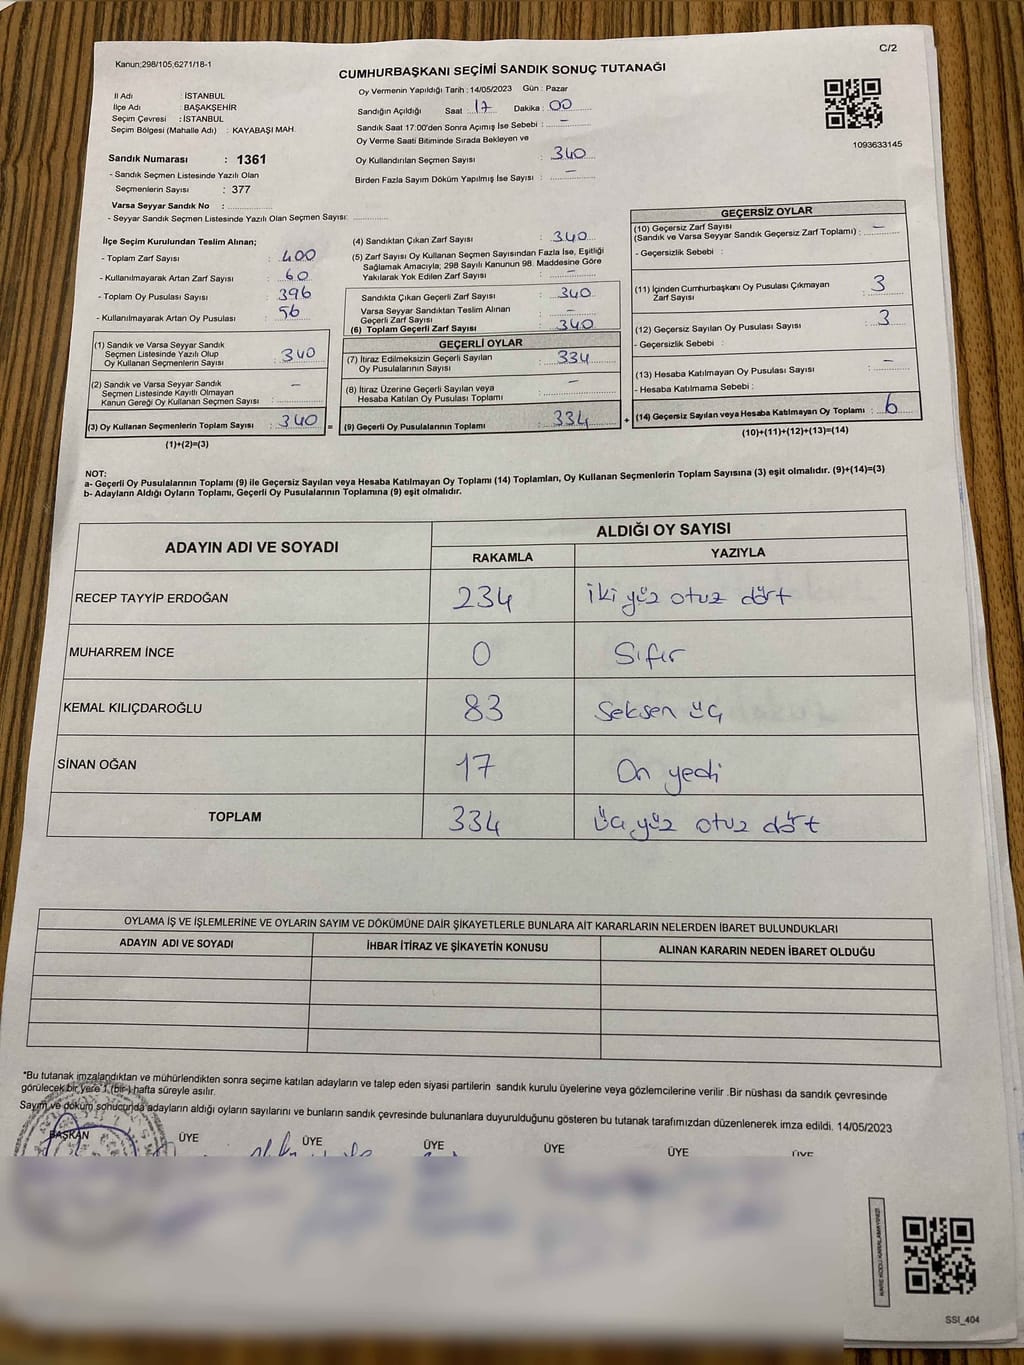 C/2
Kanun;298/105,6271/18-1
CUMHURBAŞKANI SEÇİMİ SANDIK SONUÇ TUTANAĞI
İl Adı : İSTANBUL
İlçe Adı : BAŞAKŞEHİR
Seçim Çevresi : İSTANBUL
Seçim Bölgesi (Mahalle Adı) : KAYABAŞI MAH.
Sandık Numarası : 1361
- Sandık Seçmen Listesinde Yazılı Olan
Seçmenlerin Sayısı : 377
Varsa Seyyar Sandık No :
- Seyyar Sandık Seçmen Listesinde Yazılı Olan Seçmen Sayısı:
Oy Vermenin Yapıldığı Tarih : 14/05/2023 Gün : Pazar
Sandığın Açıldığı Saat : 17 Dakika : 00
Sandık Saat 17:00'den Sonra Açımış İse Sebebi : -
Oy Verme Saati Bitiminde Sırada Bekleyen ve
Oy Kullandırılan Seçmen Sayısı : 340
Birden Fazla Sayım Döküm Yapılmış İse Sayısı : -
1093633145
İlçe Seçim Kurulundan Teslim Alınan;
- Toplam Zarf Sayısı : 400
- Kullanılmayarak Artan Zarf Sayısı : 60
- Toplam Oy Pusulası Sayısı : 396
- Kullanılmayarak Artan Oy Pusulası : 56
(1) Sandık ve Varsa Seyyar Sandık
Seçmen Listesinde Yazılı Olup
Oy Kullanan Seçmenlerin Sayısı : 340
(2) Sandık ve Varsa Seyyar Sandık
Seçmen Listesinde Kayıtlı Olmayan
Kanun Gereği Oy Kullanan Seçmen Sayısı : -
(3) Oy Kullanan Seçmenlerin Toplam Sayısı : 340 =
(1)+(2)=(3)
(4) Sandıktan Çıkan Zarf Sayısı : 340
(5) Zarf Sayısı Oy Kullanan Seçmen Sayısından Fazla İse, Eşitliği
Sağlamak Amacıyla, 298 Sayılı Kanunun 98. Maddesine Göre
Yakılarak Yok Edilen Zarf Sayısı : -
Sandıkta Çıkan Geçerli Zarf Sayısı : 340
Varsa Seyyar Sandıktan Teslim Alınan
Geçerli Zarf Sayısı : -
(6) Toplam Geçerli Zarf Sayısı : 340
GEÇERLİ OYLAR
(7) İtiraz Edilmeksizin Geçerli Sayılan
Oy Pusulalarının Sayısı : 334
(8) İtiraz Üzerine Geçerli Sayılan veya
Hesaba Katılan Oy Pusulası Toplamı : -
(9) Geçerli Oy Pusulalarının Toplamı : 334 +
GEÇERSİZ OYLAR
(10) Geçersiz Zarf Sayısı
(Sandık ve Varsa Seyyar Sandık Geçersiz Zarf Toplamı) : -
- Geçersizlik Sebebi :
(11) İçinden Cumhurbaşkanı Oy Pusulası Çıkmayan
Zarf Sayısı : 3
(12) Geçersiz Sayılan Oy Pusulası Sayısı : 3
- Geçersizlik Sebebi :
(13) Hesaba Katılmayan Oy Pusulası Sayısı : -
- Hesaba Katılmama Sebebi :
(14) Geçersiz Sayılan veya Hesaba Katılmayan Oy Toplamı : 6
(10)+(11)+(12)+(13)=(14)
NOT:
a- Geçerli Oy Pusulalarının Toplamı (9) ile Geçersiz Sayılan veya Hesaba Katılmayan Oy Toplamı (14) Toplamları, Oy Kullanan Seçmenlerin Toplam Sayısına (3) eşit olmalıdır. (9)+(14)=(3)
b- Adayların Aldığı Oyların Toplamı, Geçerli Oy Pusulalarının Toplamına (9) eşit olmalıdır.
ADAYIN ADI VE SOYADI ALDIĞI OY SAYISI
RAKAMLA YAZIYLA
RECEP TAYYİP ERDOĞAN 234 iki yüz otuz dört
MUHARREM İNCE 0 Sıfır
KEMAL KILIÇDAROĞLU 83 Seksen üç
SİNAN OĞAN 17 On yedi
TOPLAM 334 üç yüz otuz dört
OYLAMA İŞ VE İŞLEMLERİNE VE OYLARIN SAYIM VE DÖKÜMÜNE DAİR ŞİKAYETLERLE BUNLARA AİT KARARLARIN NELERDEN İBARET BULUNDUKLARI
ADAYIN ADI VE SOYADI İHBAR İTİRAZ VE ŞİKAYETİN KONUSU ALINAN KARARIN NEDEN İBARET OLDUĞU
*Bu tutanak imzalandıktan ve mühürlendikten sonra seçime katılan adayların ve talep eden siyasi partilerin sandık kurulu üyelerine veya gözlemcilerine verilir .Bir nüshası da sandık çevresinde
görülecek bir yere 1 (bir-) hafta süreyle asılır.
Sayım ve döküm sonucunda adayların aldığı oyların sayılarını ve bunların sandık çevresinde bulunanlara duyurulduğunu gösteren bu tutanak tarafımızdan düzenlenerek imza edildi. 14/05/2023
BAŞKAN ÜYE ÜYE ÜYE ÜYE ÜYE ÜYE
KARE KODU KARALAMAYINIZ!
SSI_404